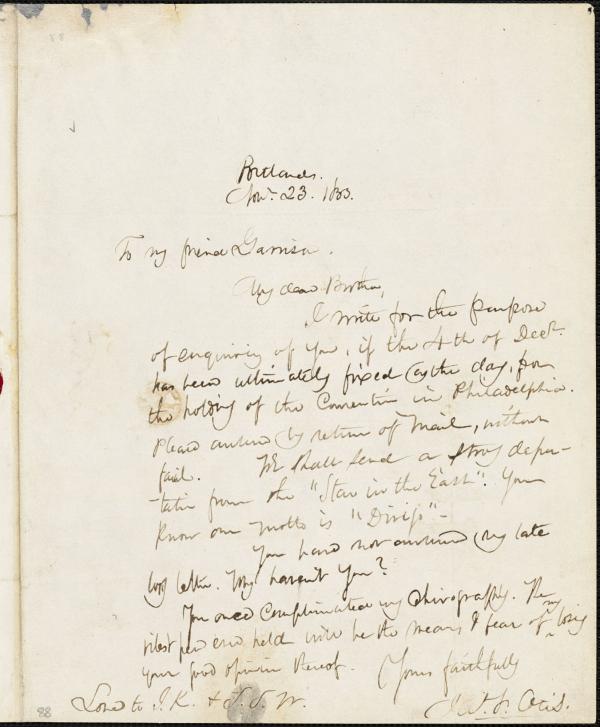 88
Portland.
Nov. 23. 1833.
To my friend Garrison.
My dear Brother,
I write for the purpose
of enquiring of you, if the 4th of Decr.
has been ultimately fixed as the day, for
the holding of the Convention in Philadelphia.
Please answer by return of Mail, without
fail. We shall send a strong depu-
-tation from the "Star in the East". You
know our motto is "Dirigo".
You have not answered my late
long letter. Why haven't you?
You once complimented my chirography. The
vilest pen ever held will be the means I fear of my losing
your good opinion thereof.
Yours faithfully
Love to I. K. & 
Otis.
88